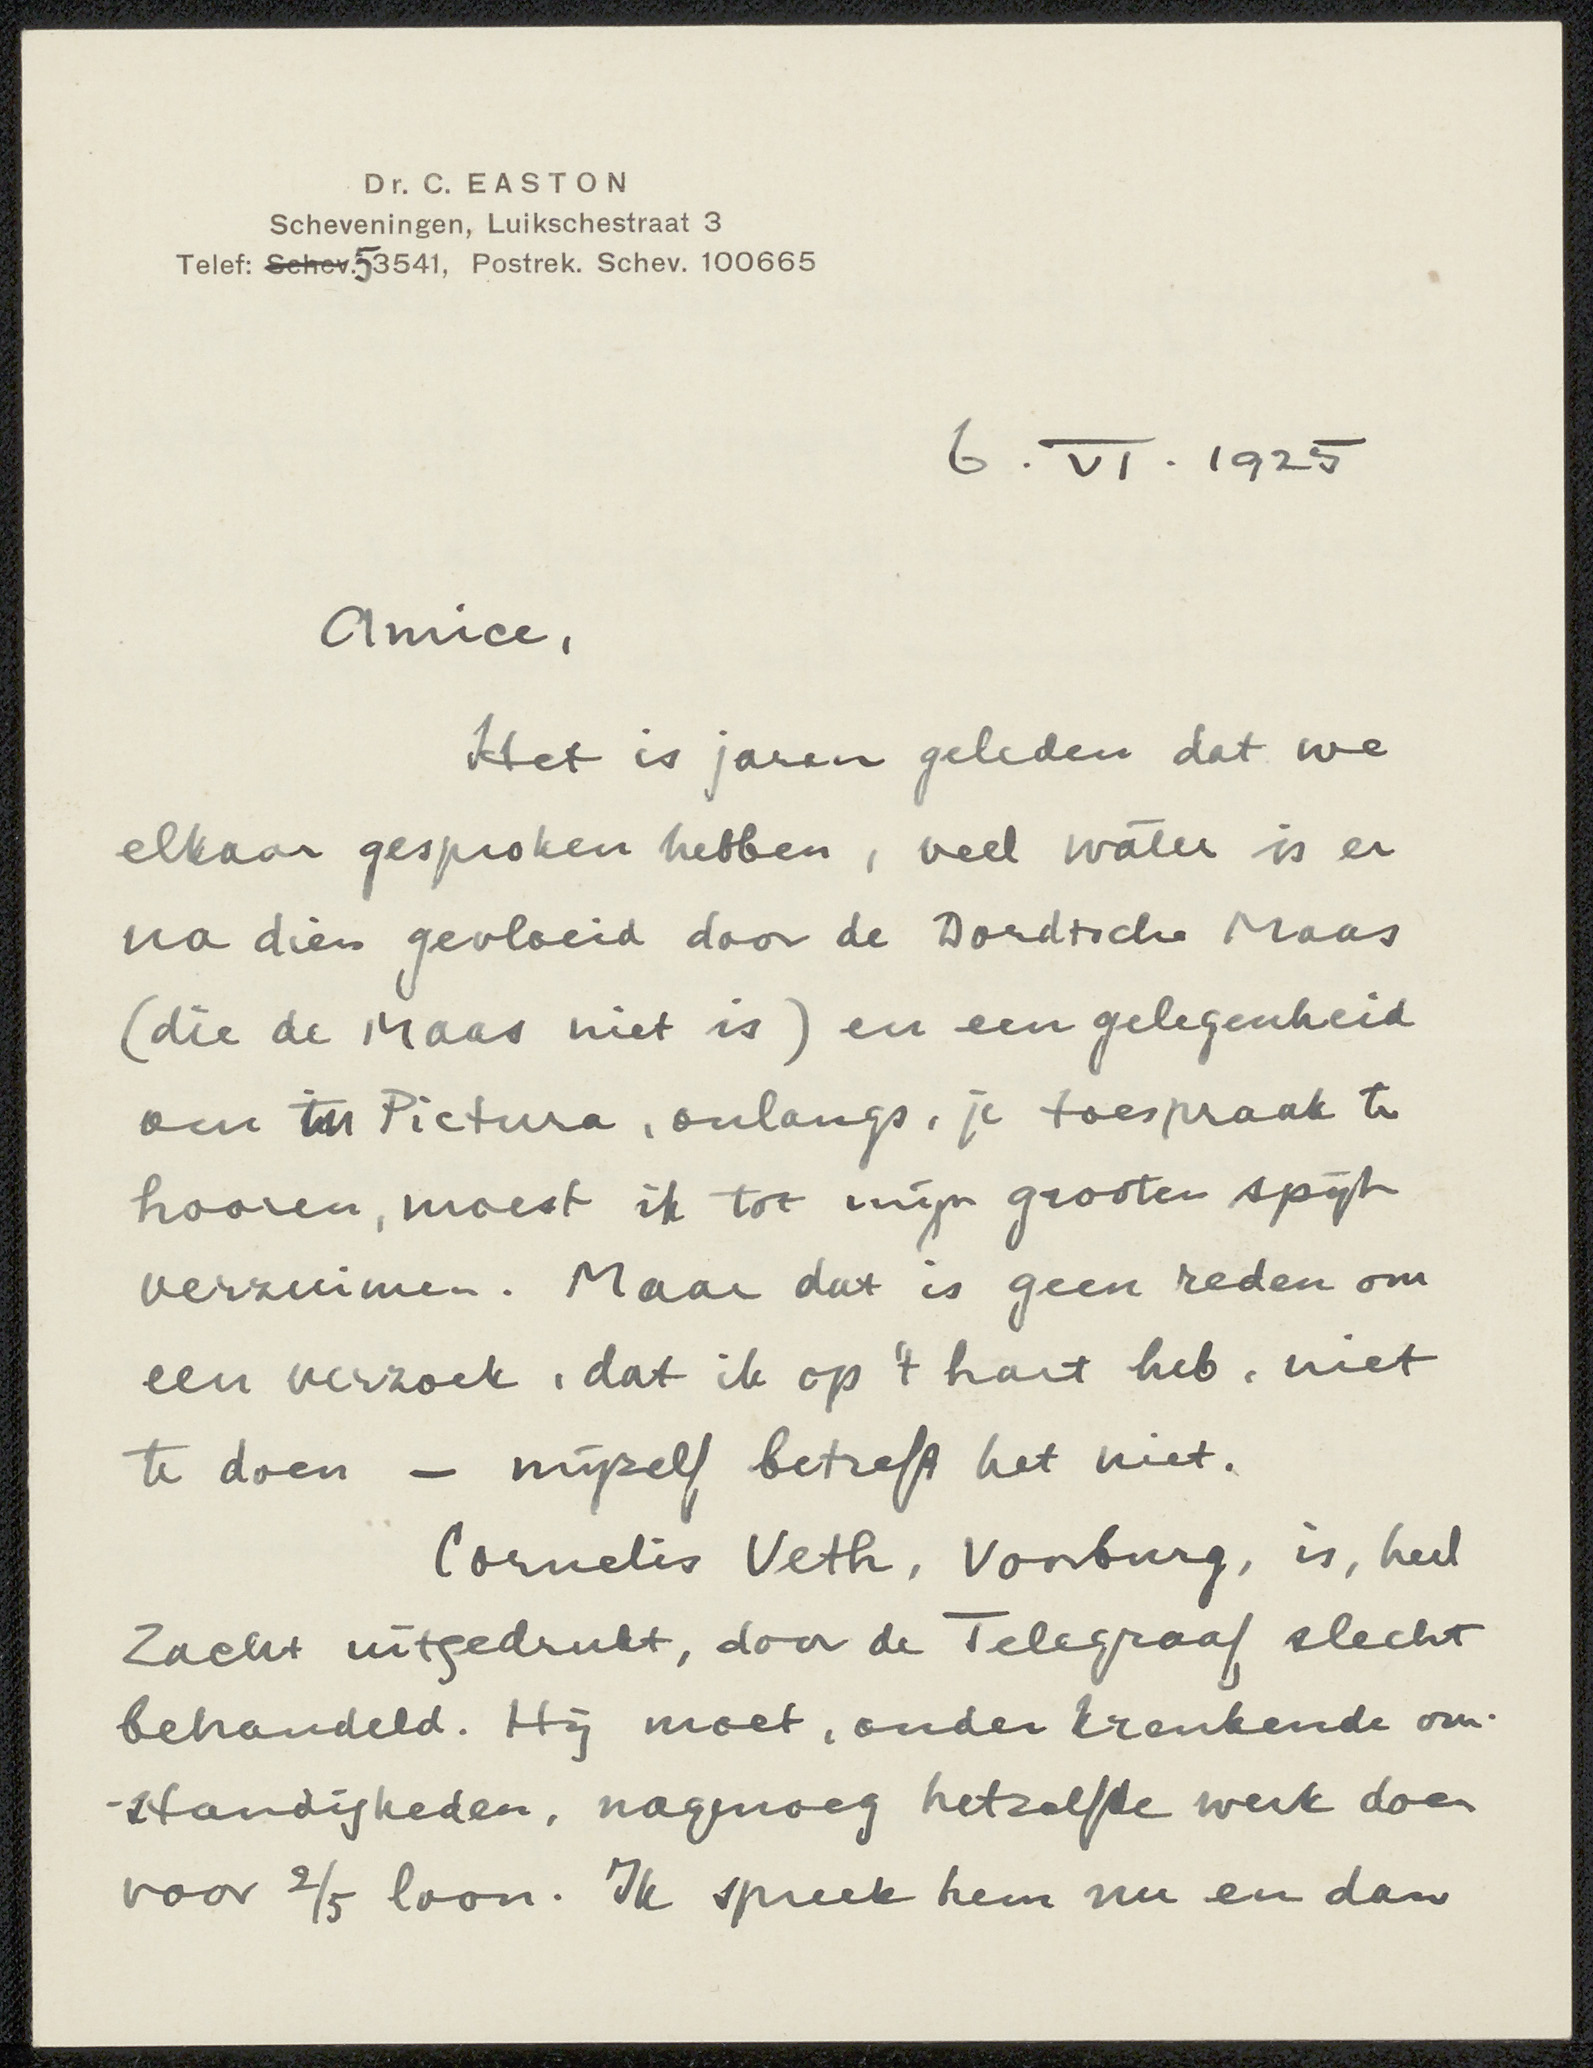 Dr. C. EASTON
Scheveningen, Luikschestraat 3
Telef: Schev. 53541, Postrek. Schev. 100665
6. VI. 1925
Amice,
Het is jaren geleden dat we
elkaar gesproken hebben, veel water is er
na dien gevloeid door de Dordtsche Maas
(die de Maas niet is) en een gelegenheid
om in Pictura, onlangs, je toespraak te
hooren, moest ik tot mijn grooten spijt
verzuimen. Maar dat is geen reden om
een verzoek, dat ik op 't hart heb, niet
te doen — mijzelf betreft het niet.
Cornelis Veth, Voorburg, is, heel
zacht uitgedrukt, door de Telegraaf slecht
behandeld. Hij moet, onder krenkende om-
-standigheden, nagenoeg hetzelfde werk doen
voor 2/5 loon. Ik spreek hem nu en dan